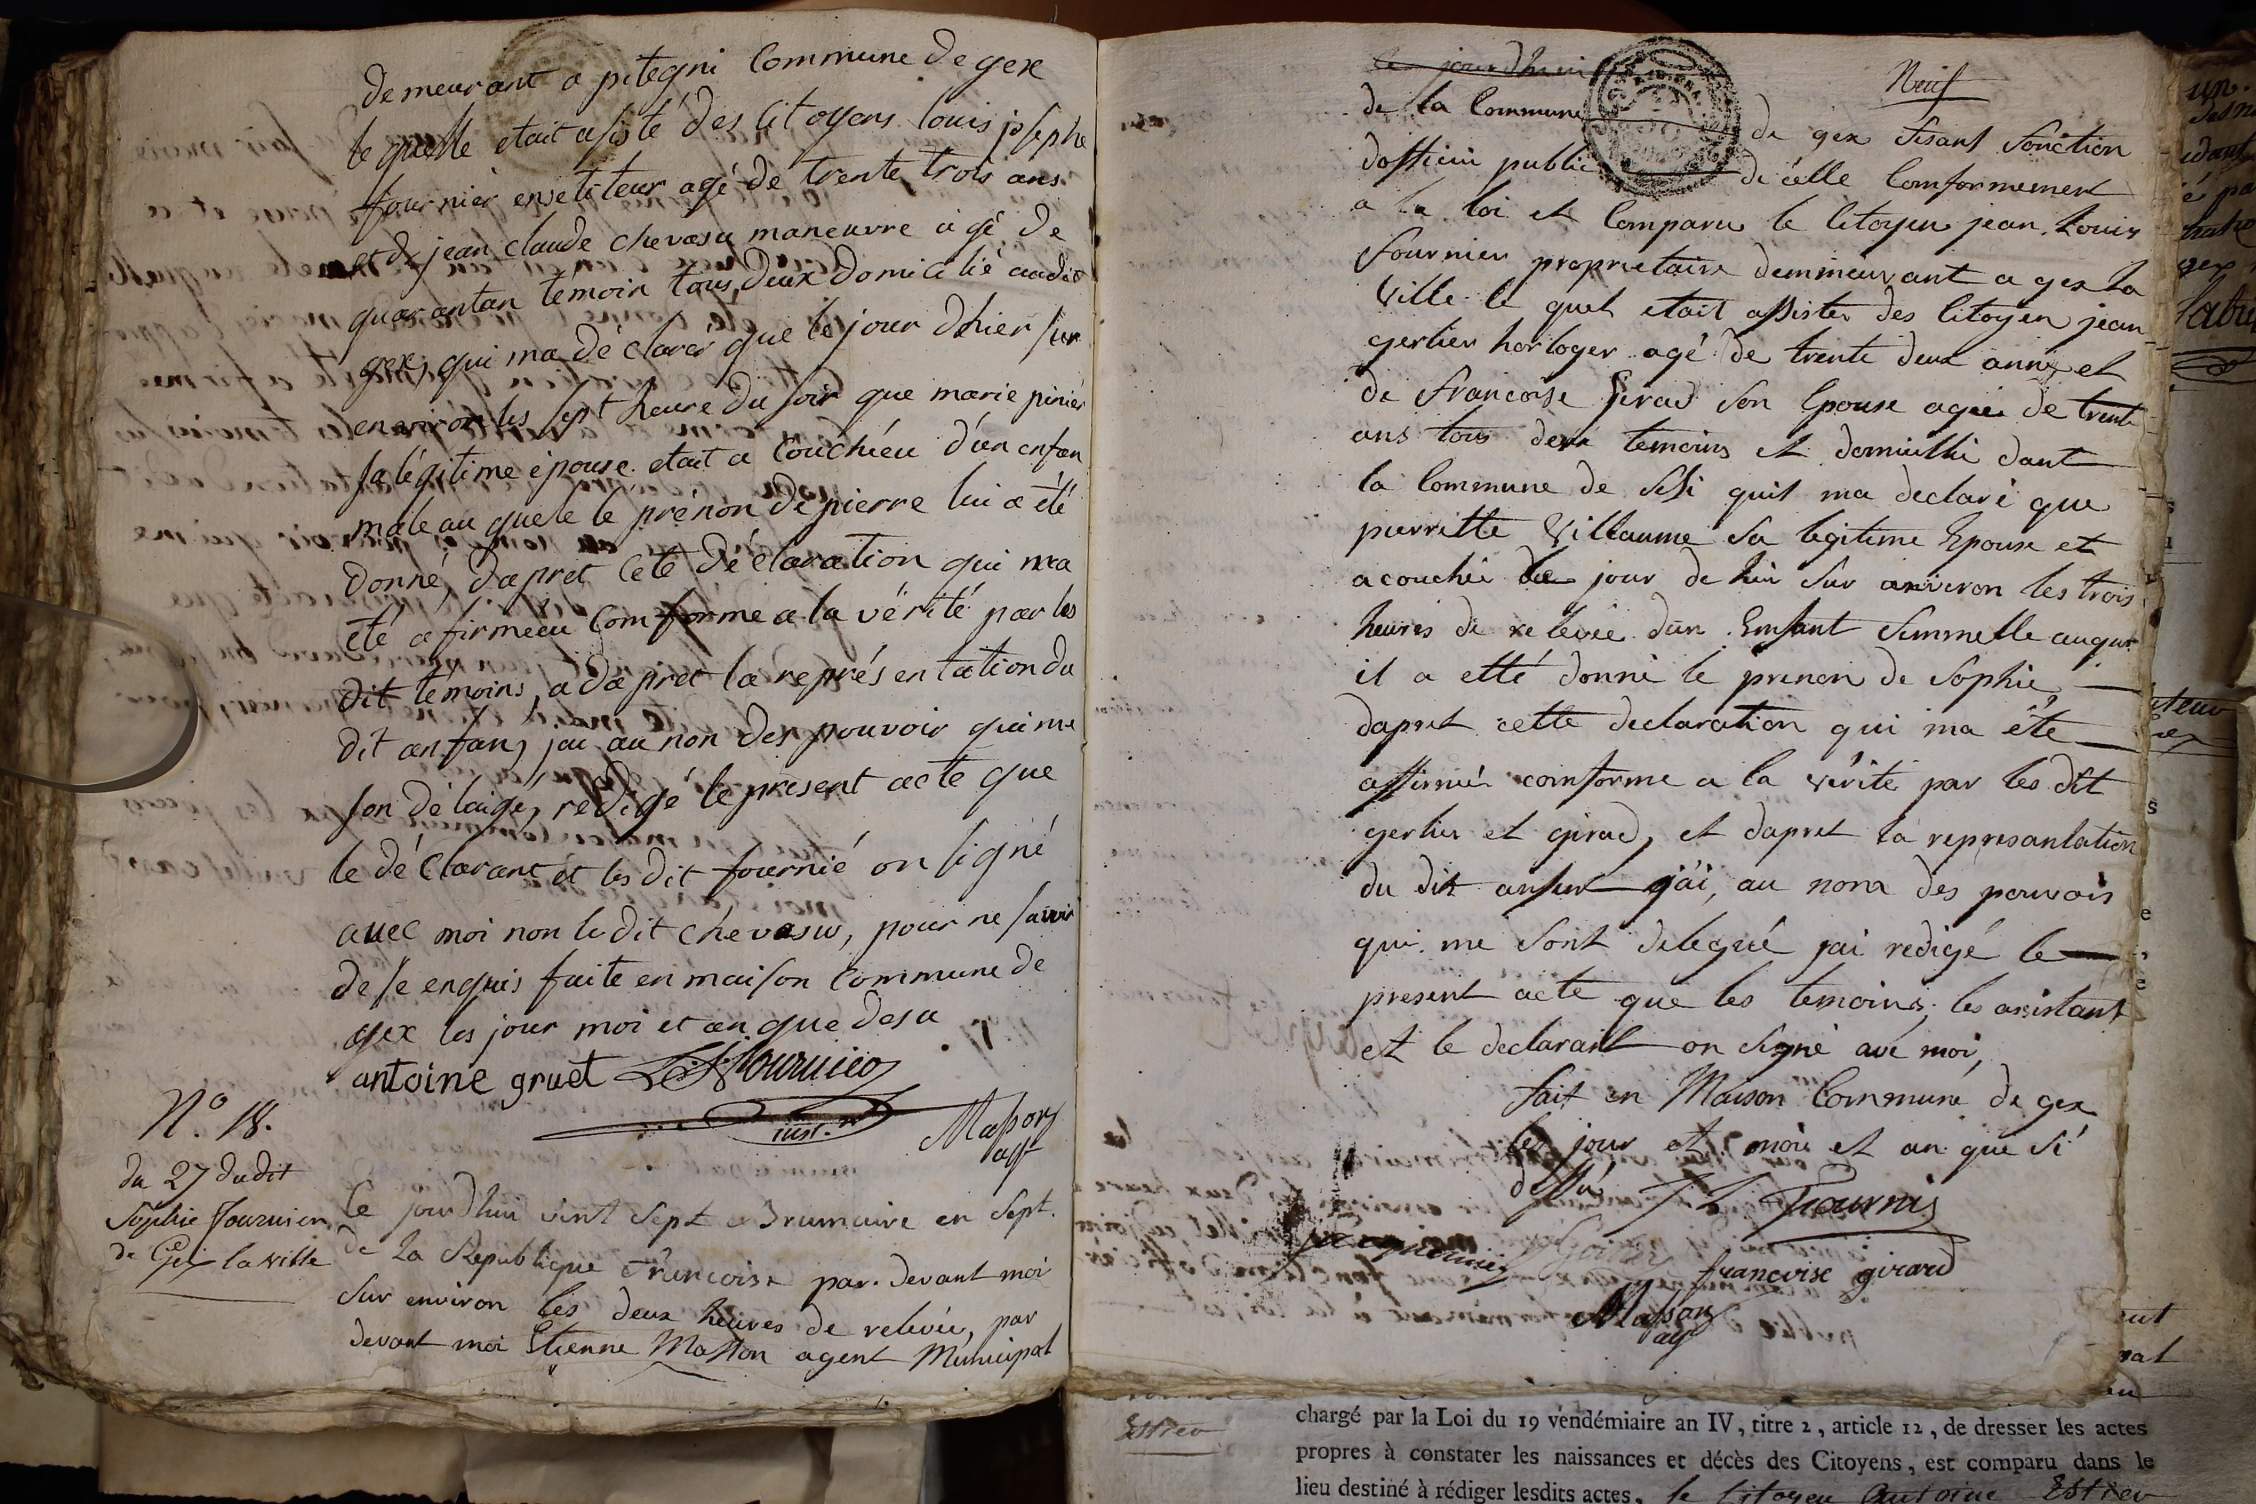 demeurant a pitegni Commune de gex
le quelle etait asisté des Citoyens louis josephe
fournier ensetiteur agé de trente trois ans
et de jean claude chevasu maneuvre agé de
quarantan temoin tous deux domicilié audit
gex, qui ma déclaré que le jour dhier sur
environ les sept heure du soir que marie
sa légitime épouse etait a Couchéeu d'un enfan
male au quele le prénon de pierre lui a été
donné, dapret Cete déclaration qui ma
été afirmeeu Comforme a la vérité par les
dit témoins, a dapret la représentation du
dit anfan, jai au non des pouvoir qui me
son délaigé, redigé le present acte que
le déClarant et les dit fournié on signé
avec moi non le dit chevasu, pour ne savoir
de se enquis faite en maison Commune de
gex les jour moi et an que desu
antoine gruet Fournier
inst.r
Masson
agt
N.o 18.
du 27 dudit
Sophie Fournier
de Gex la ville
Ce jourdhui vint Sept Brumaire en Sept.
de La Republique Françoise par devant moi
Sur environ les deux heures de relevée, par
devant moi Etienne Masson agent Municipal
Neuf
de la Commune de gex fisant fonction
dofficié public de célle Comformement
a la loi et Comparu le Citoyen jean Louis
fournier proprietaire demmeurant a gex la
Ville le quel etait assister des Citoyen jean
gerlier horloger agé de trente deux anns et
de francoise son Epouse agée de trente
ans tous deux temoins et domicillié dant
la Commune de qu'il ma declaré que
pierrette Villaume Sa legitime Epouse et
acouchée jour de hier Sur anviron les trois
heures de relevée d'un Emfant femmelle auquel
il a etté donné le prenon de Sophie,
dapret cette declaration qui ma été
affirmé comforme a la vérité par les dit
gerlier et girad, et dapret la represantation
du dit anfan jai, au nom des pouvois
qui me sont delegué jai redigé le
present acte que les temoins, les assistant
et le declarant on Signé avé moi,
fait en Maison Commune de gex
les jour et mois et an que si
dessus J L Fournier
françoise girard
Masson
agt
chargé par la Loi du 19 vendémiaire an IV, titre 2, article 12, de dresser les actes
propres à constater les naissances et décès des Citoyens, est comparu dans le
lieu destiné à rédiger lesdits actes, le Citoyen Antoine